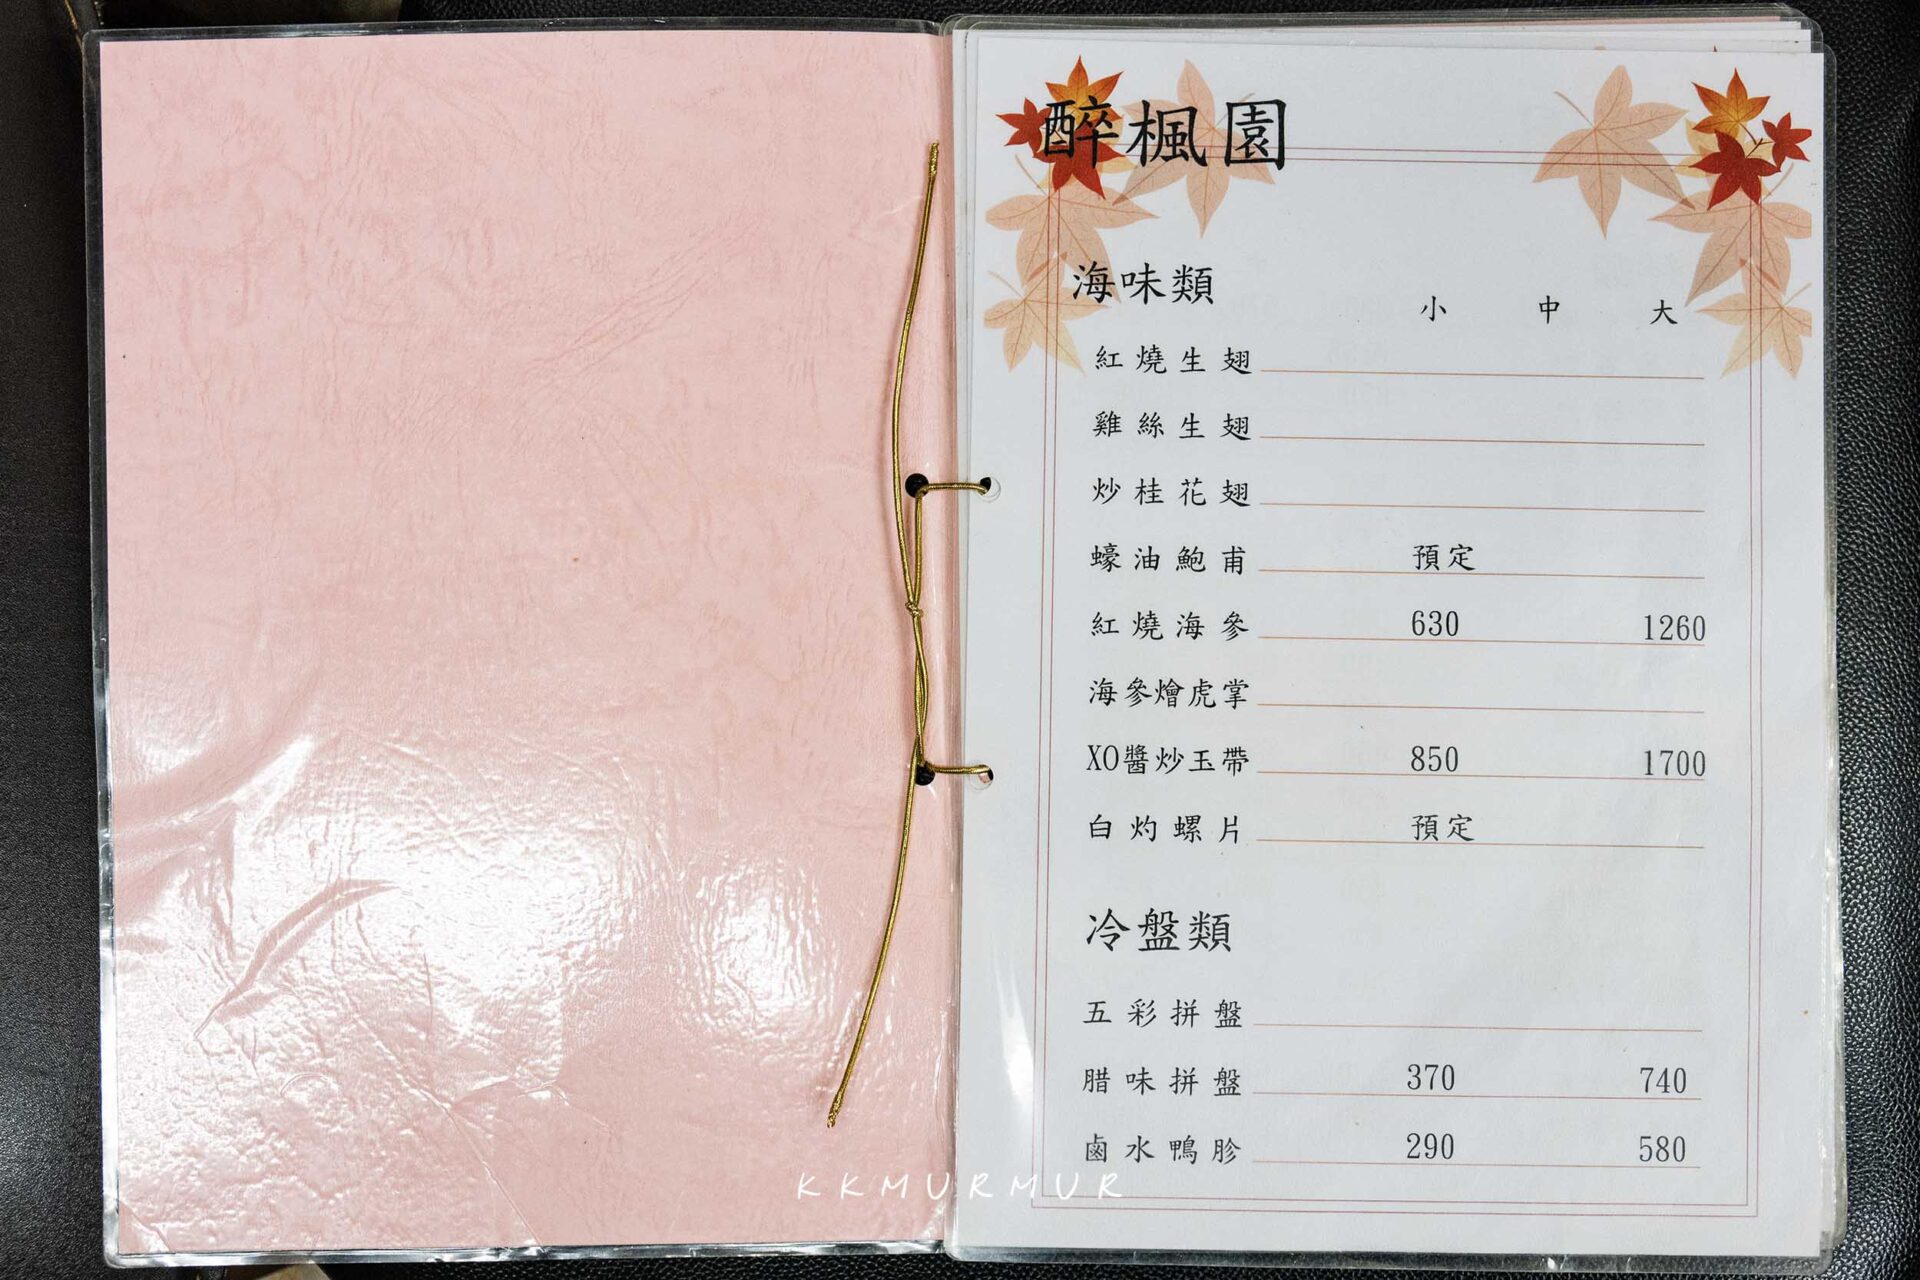 醉楓園
海味類 小 中 大
紅燒生翅
雞絲生翅
炒桂花翅
蠔油鮑甫 預定
紅燒海參 630 1260
海參燴虎掌
XO醬炒玉帶 850 1700
白灼螺片 預定
冷盤類
五彩拼盤
腊味拼盤 370 740
鹵水鴨胗 290 580
KKMURMUR